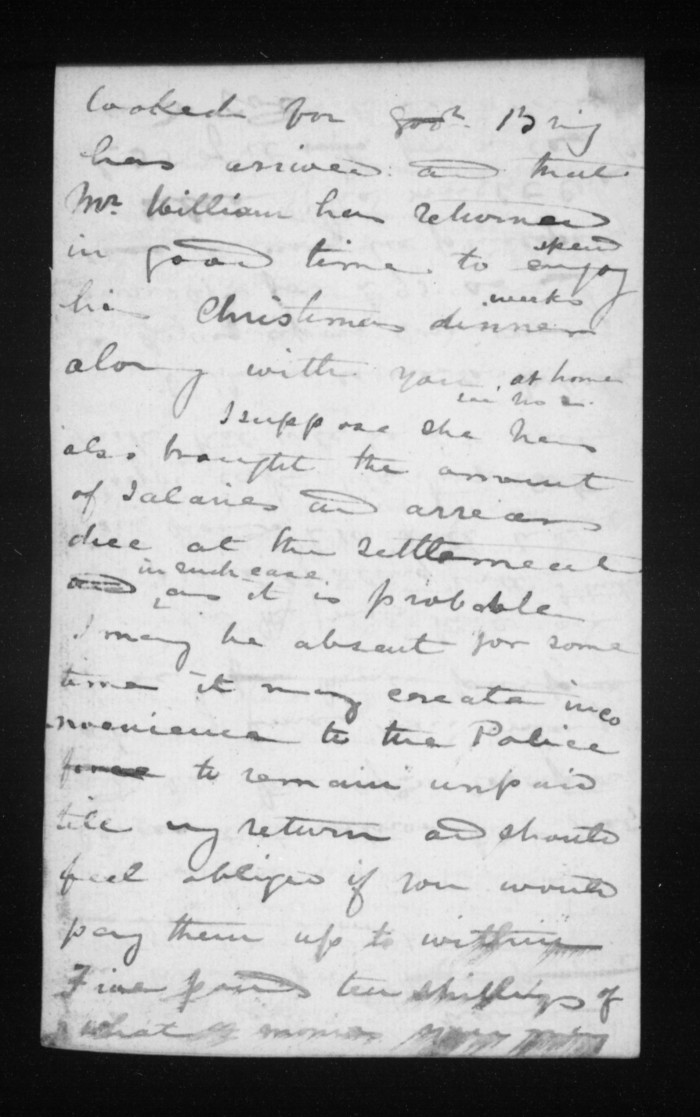 looked for Govt. Brig
has arrived and that
Mr. William has returned
in good time to enjoy spend
his Christmas dinner weeks
along with you at home
I suppose she has
also brought the amount
of Salaries and arrears
due at the settlement
and in such case as it is probable
I may be absent for some
time it may create inco
nvenience to the Police
force to remain unpaid
till my return and should
feel obliged if you would
pay them up to within
Five pounds ten shillings of
what monies